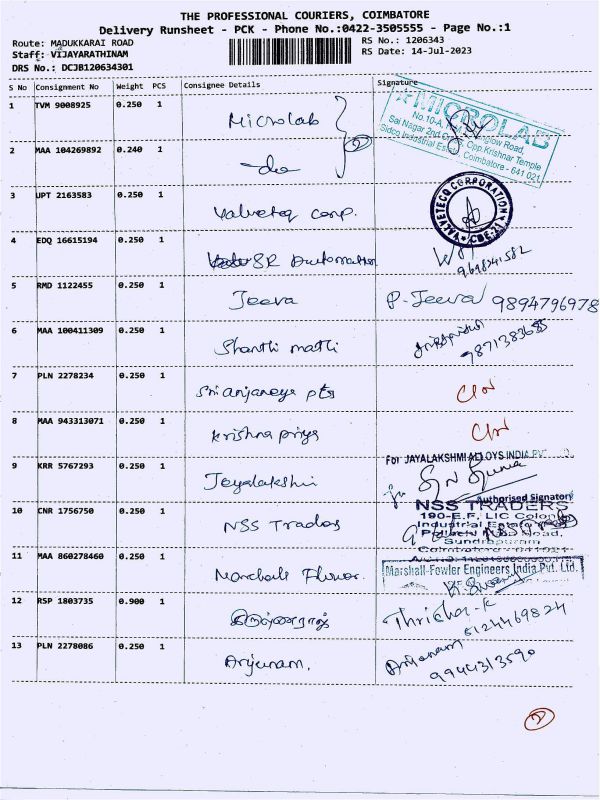 THE PROFESSIONAL COURIERS, COIMBATORE
Delivery Runsheet - PCK - Phone No.:0422-3505555 - Page No.:1
Route: MADUKKARAI ROAD RS No.: 1206343
Staff: VIJAYARATHINAM RS Date: 14-Jul-2023
DRS No.: DCJB120634301
S No Consignment No Weight PCS Consignee Details Signature
1 TVM 9008925 0.250 1 Microlab
MICROLAB
Sai Nagar 2nd Opp.Krishnar Temple
Sidco Industrial Coimbatore - 641 021
2 MAA 104269892 0.240 1 -do 2
3 UPT 2163583 0.250 1 Valveteq corp. VALVETECQ CORPORATION CBE-21
4 EDQ 16615194 0.250 1 SR Automation
5 RMD 1122455 0.250 1 Jeeva P-Jeeva 9894796978
6 MAA 100411309 0.250 1 Shanthi mathi 9871383685
7 PLN 2278234 0.250 1 Sri anjaneya pts
8 MAA 943313071 0.250 1 Krishna priya
9 KRR 5767293 0.250 1 Jeyalakshmi For JAYALAKSHMI ALLOYS INDIA
Authorised Signatory
10 CNR 1756750 0.250 1 NSS Trades NSS TRADERS
190-E.F, LIC Colony
Industrial Estate
Road,
Sundrapuram
11 MAA 860278460 0.250 1 Marshall-Fowler Engineers India Pvt. Ltd.
12 RSP 1803735 0.900 1 6124469824
13 PLN 2278086 0.250 1 Arjunam. 9944313590
2